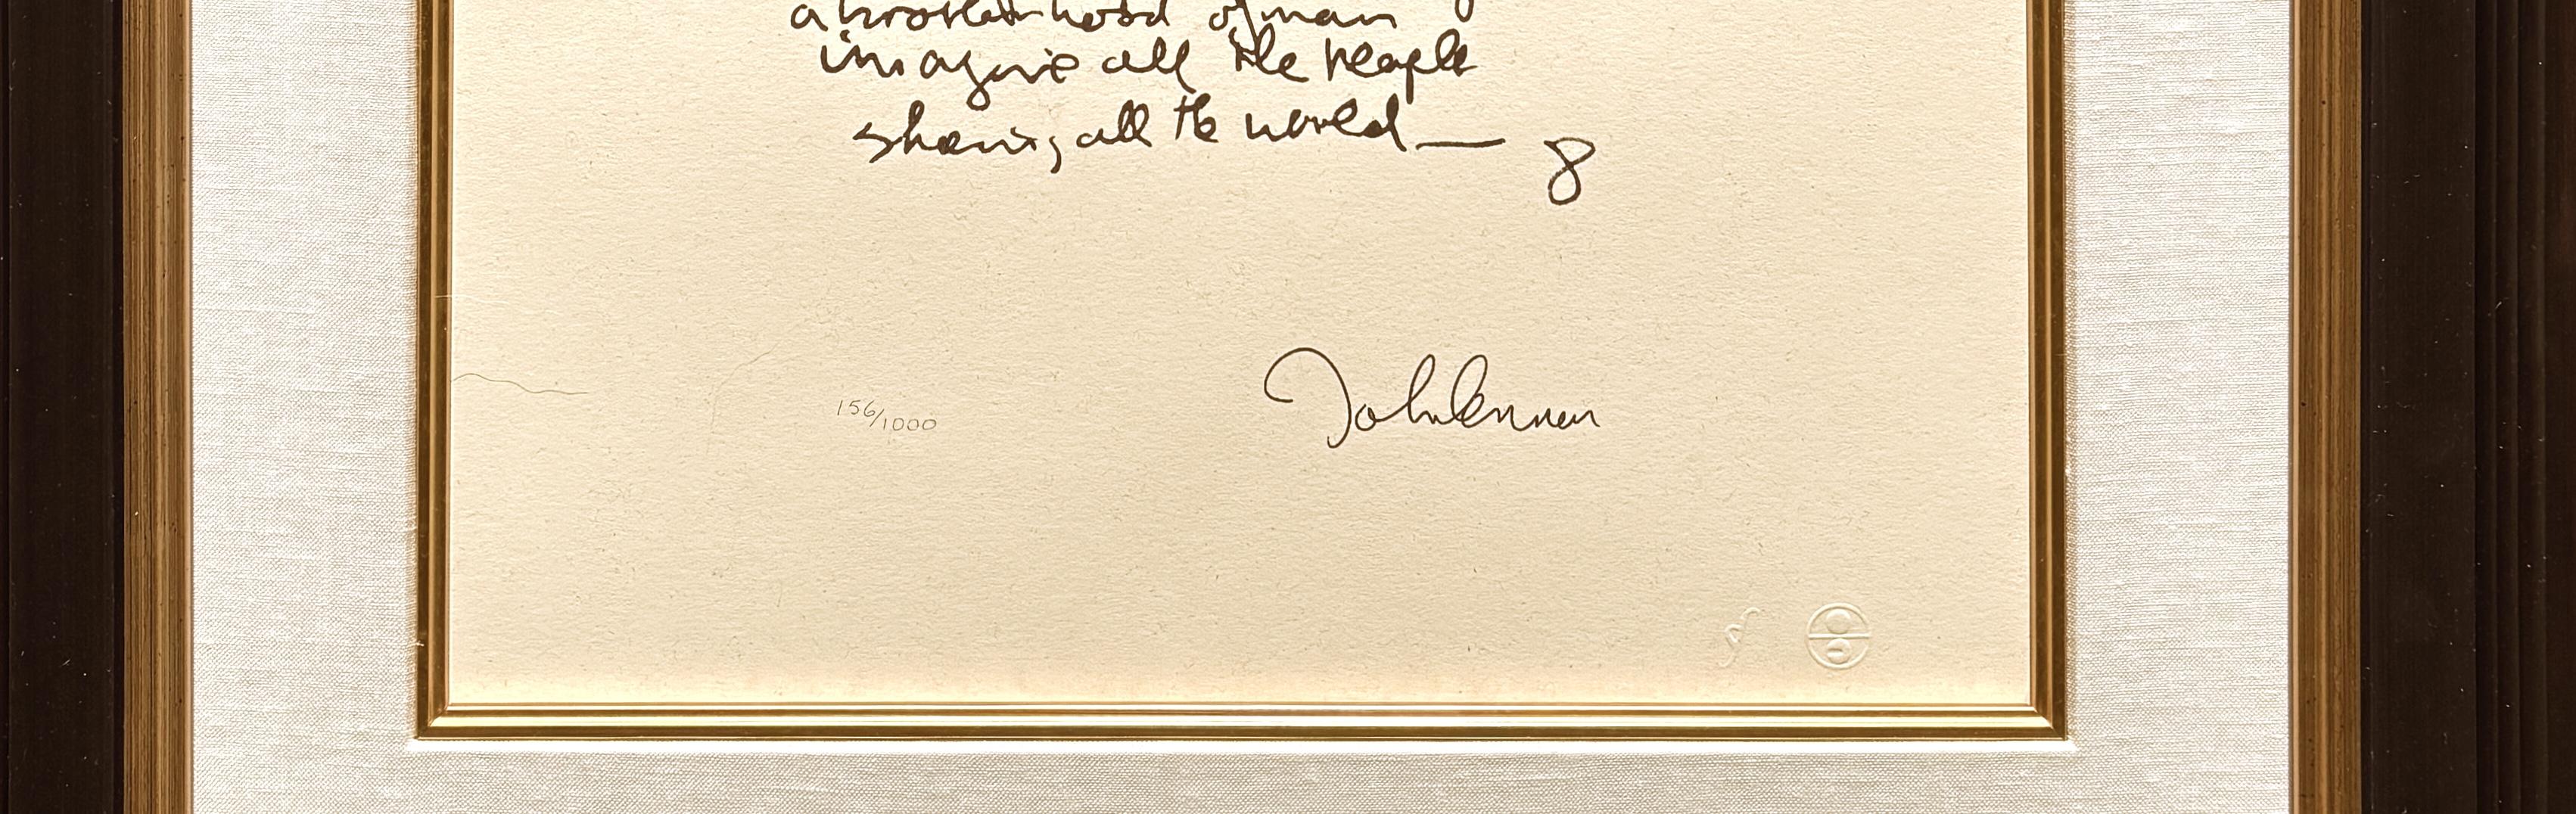 a brotherhood of man
imagine all the people
sharing all the world —
8
156/1000
John Lennon